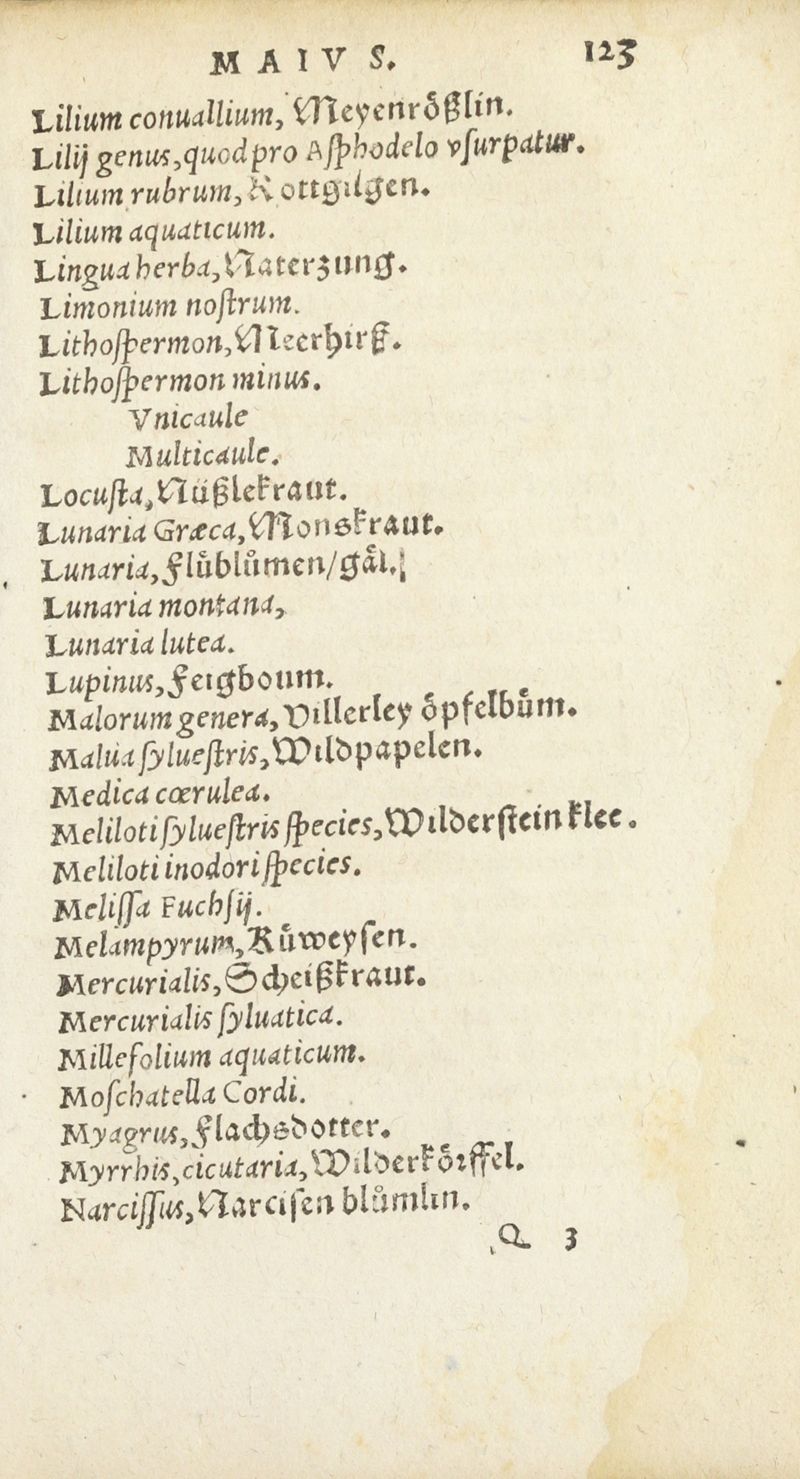 MAIVS. 123
Lilium conuallium, Meyenrößlin.
Lilij genus, quod pro Aſphodelo vſurpatur.
Lilium rubrum, Rottgilgen.
Lilium aquaticum.
Lingua herba, Naterzung.
Limonium noſtrum.
Lithoſpermon, Meerhirß.
Lithoſpermon minus.
Vnicaule
Multicaule.
Locuſta, Nüßlekraut.
Lunaria Græca, Monskraut.
Lunaria, Flůblůmen/gäl.
Lunaria montana,
Lunaria lutea.
Lupinus, Feigboum.
Malorum genera, Villerley öpfelbům.
Malua ſylueſtris, Wildpapelen.
Medica cœrulea.
Meliloti ſylueſtris ſpecies, Wilder ſtein klee.
Meliloti inodori ſpecies.
Meliſſa Fuchſij.
Melampyrum, Kůweyſen.
Mercurialis, Scheißkraut.
Mercurialis ſyluatica.
Millefolium aquaticum.
Moſchatella Cordi.
Myagrus, Flachsdotter.
Myrrhis, cicutaria, Wilderkörffel.
Narciſſus, Narciſen blůmlin.
Q 3